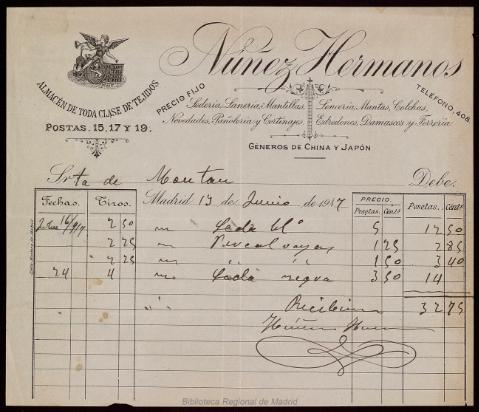 Núñez Hermanos
ALMACÉN DE TODA CLASE DE TEJIDOS
POSTAS. 15, 17 Y 19.
PRECIO FIJO
TELÉFONO, 408
Sedería, Lanería, Mantillas, Lencería, Mantas, Colchas,
Novedades, Pañolería y Cortinajes. Edredones, Damascos y Tercería
GÉNEROS DE CHINA Y JAPÓN
Srta de Montau Debe:
Madrid 13 de Junio de 1917
Fechas. Tiros. PRECIO. Pesetas. Cents
Pesetas. Cents
2 50 5 12 50
2 25 1 25 2 85
2 25 1 50 3 40
24 4 negra 3 50 14
Recibimos 32 75
Biblioteca Regional de Madrid